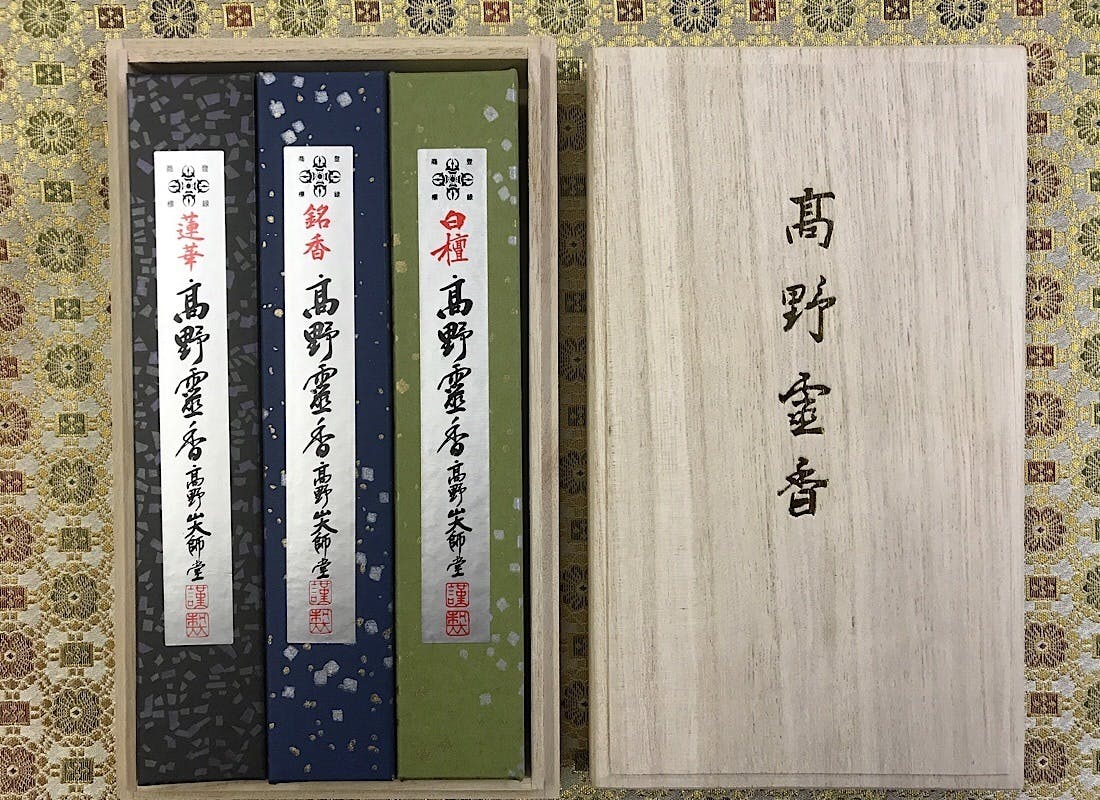 登録
商標
蓮華
髙野靈香
髙野山大師堂
謹製
登録
商標
銘香
髙野靈香
髙野山大師堂
謹製
登録
商標
白檀
髙野靈香
髙野山大師堂
謹製
髙野霊香